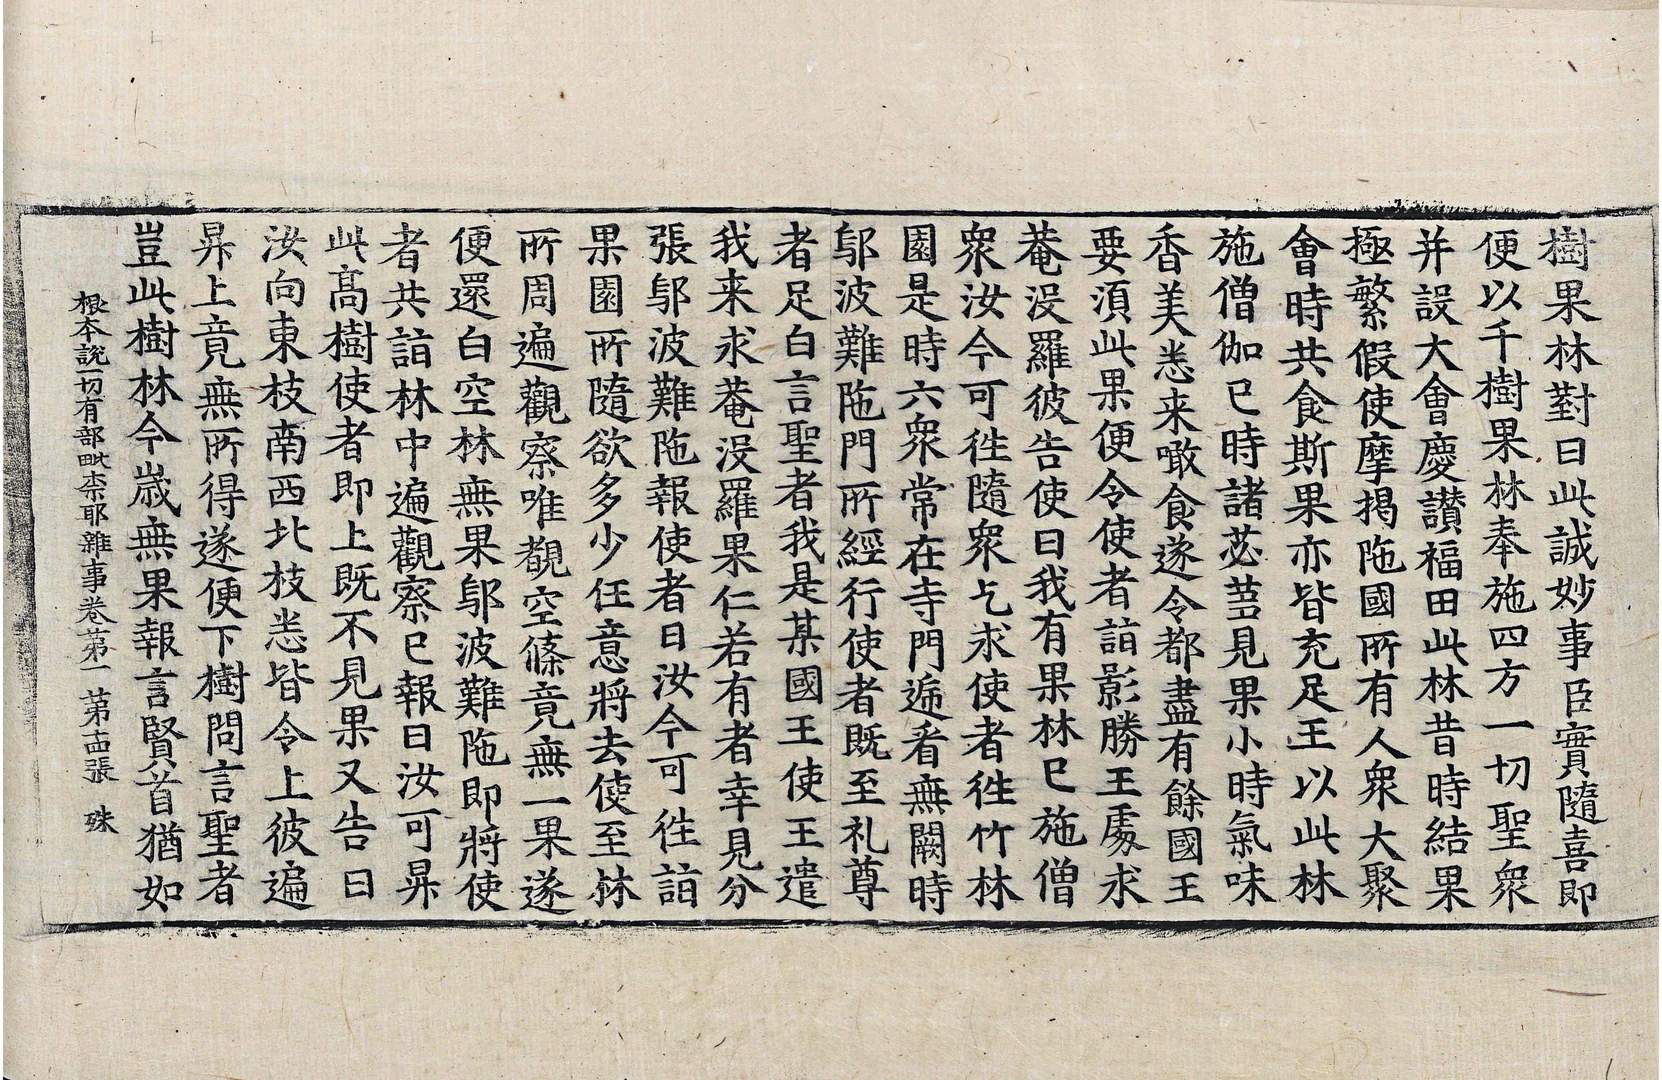 樹果林對曰此誠妙事臣實隨喜即
便以千樹果林奉施四方一切聖衆
并設大會慶讃福田此林昔時結果
極繁假使摩揭陁國所有人衆大聚
會時共食斯果亦皆充足王以此林
施僧伽已時諸苾蒭見果小時氣味
香美悉来噉食遂令都盡有餘國王
要湏此果便令使者詣影勝王處求
菴没羅彼告使曰我有果林已施僧
衆汝今可徃隨衆乞求使者徃竹林
園是時六衆常在寺門遞看無闕時
鄔波難陁門所經行使者既至礼尊
者足白言聖者我是某國王使王遣
我来求菴没羅果仁若有者幸見分
張鄔波難陁報使者曰汝今可徃詣
果園所隨欲多少任意將去使至林
所周遍觀察唯覩空條竟無一果遂
便還白空林無果鄔波難陁即將使
者共詣林中遍觀察已報曰汝可昇
此高樹使者即上既不見果又告曰
汝向東枝南西北枝悉皆令上彼遍
昇上竟無所得遂便下樹問言聖者
豈此樹林今歲無果報言賢首猶如
根本說一切有部毗柰耶雜事卷第一 第十四張 殊